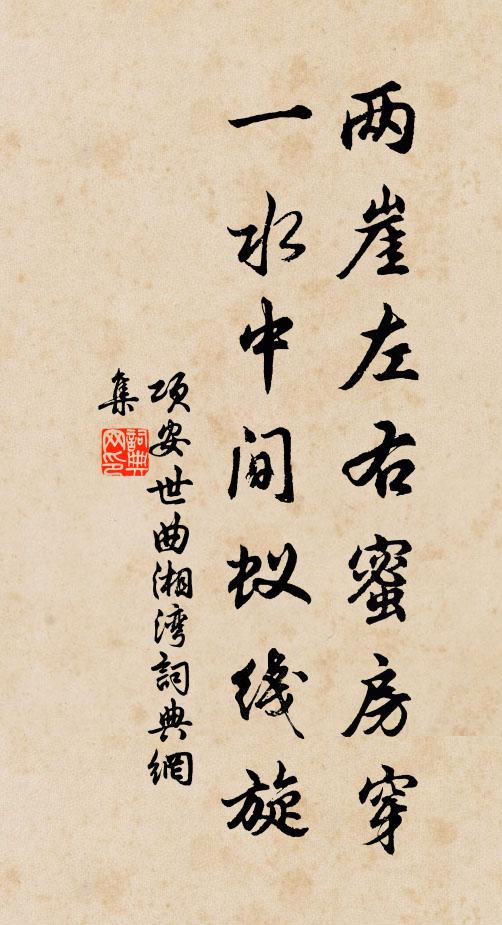 两崖左右蜜房穿
一水中间蚁线旋
项安世曲湘湾詞典網
集
詞典网印